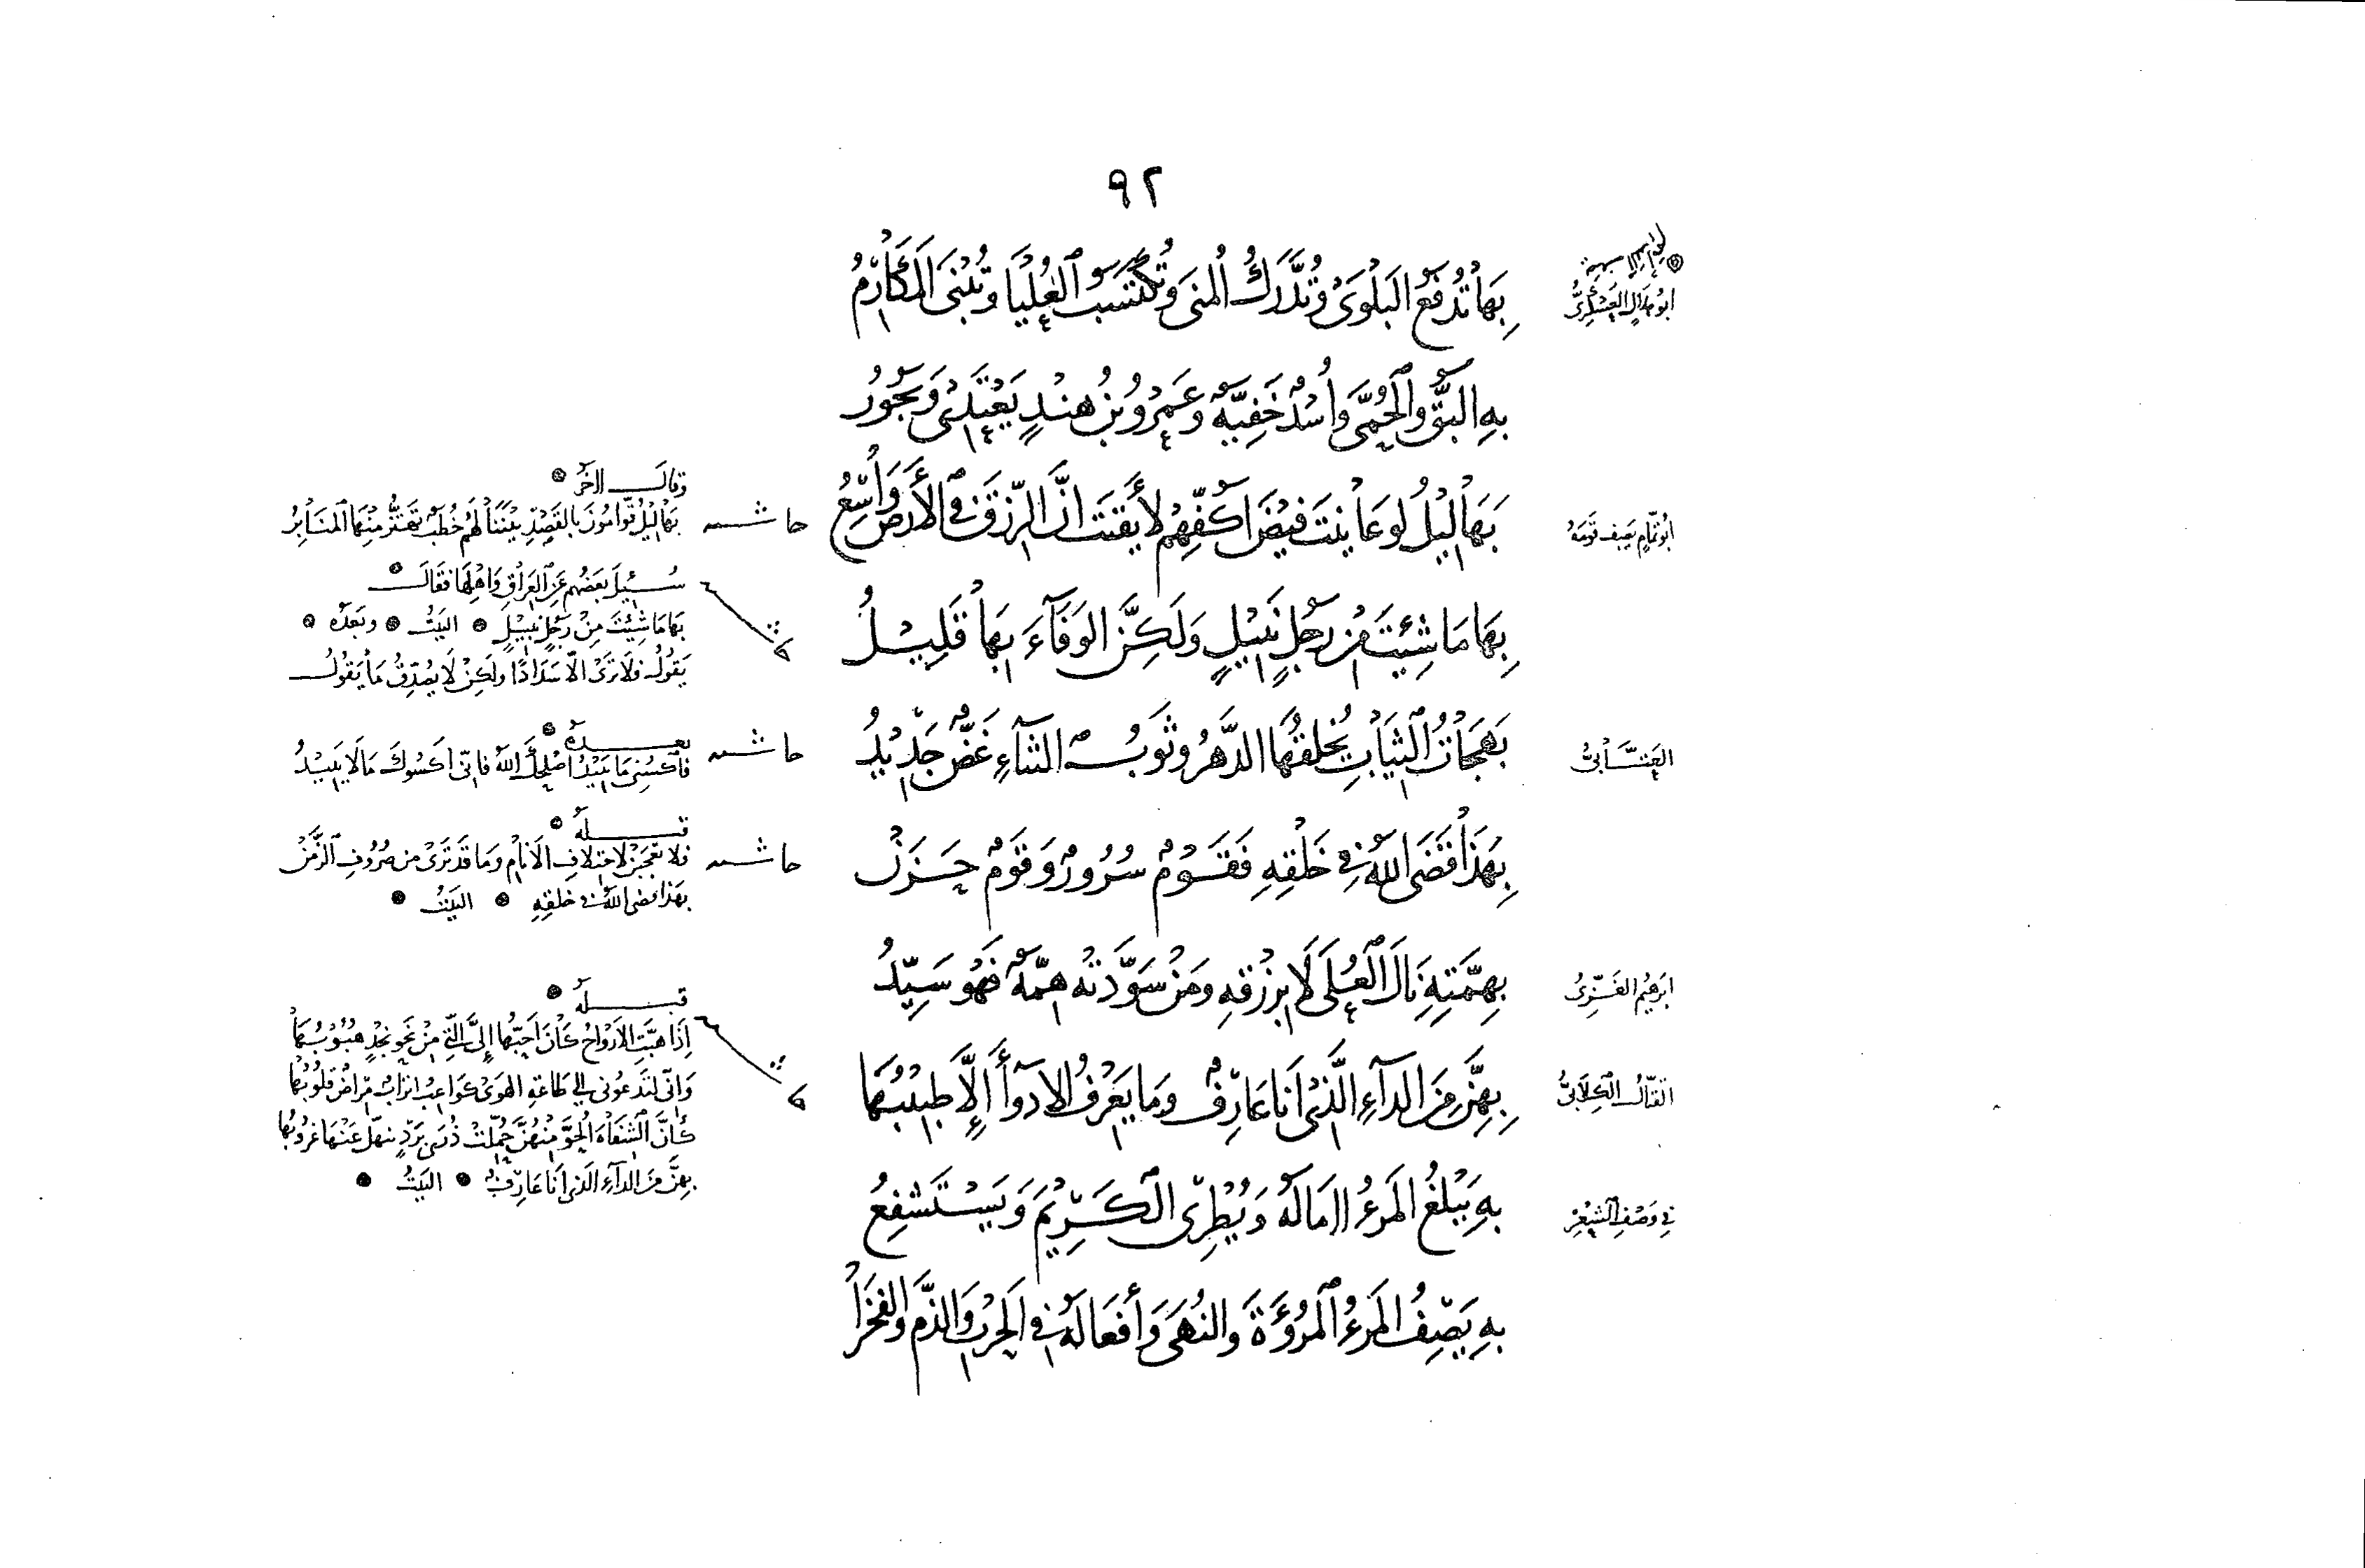 ٩٢
ابو هلال العسكرى
بِهَا تُدفَعُ البَلْوَى وَتُدْرَكُ المُنَى وَتُكتَسَبُ العُليَا وَتُبْنَى المَكَارِمُ
بِهِ البَقُّ وَالحُمَّى وَأُسْدُ خَفِيَّةٍ وَعَمرُو بنُ هِنْدٍ يَعْتَدِى وَيَجُورُ
ابُو تمَّامٍ يَصِف قَومَهُ
بَهَالِيْلُ لَو عَايَنتَ فَيْضَ اَكُفِّهِمْ لأَيقَنتَ انَّ الرِّزقَ فِى الأَرضِ وَاسِعُ
بِهَا مَا شِئِيتَ مِن رَجُلٍ نَبِيْلٍ وَلَكِنَّ الوَفَآءَ بِهَا قَلِيْلُ
العَتَّابىُّ
بَهَجَاتُ الثِيَابِ يُخْلِقُهَا الدَّهرُ وثَوبُ الثنَآءِ غَضٌّ جَدِيْدُ
بِهَذَا قَضَى اللهُ فِى خَلْقِهِ فَقَوْمٌ سُرُورٌ وَقَومٌ حَزَنْ
ابرَهيُم الغَزِّىُ
بِهِمَّتِهِ نَالَ العُلَى لَا بِرِزْقِهِ وَمَنْ سَوَّدَتْهُ هِمَّةٌ فَهُو سَيِّدُ
القتَّالُ الكِلَابىُّ
بِهِنَّ مِنَ الدآءِ الَّذى اَنَا عَارِفٌ وَمَا يَعْرِفُ الادوآءَ إِلَّا طَبِيْبُهَا
فِى وَصْفِ الشِعْرِ
بِهِ يَبْلغُ المَرءُ امَالَهُ وَيُطْرِى الكَرِيْمَ وَيَستَشفِعُ
بِهِ يَصِفُ المَرءُ المرُوءَةَ وَالنُهَى وَأَفعَالَهُ فِى الحَربِ وَالذَّمِّ وَالفَخرَا
وَقالَ اخَرُ
حاشيه
بَهَالِيْلُ قَوَّامُونَ بِالقَصْدِ بَيْنَنَا لَهُمْ خُطَبٌ تَهْتَزُّ مِنْهَا المنَابِرُ
سُئِيلَ بَعضُهم عَنِ العِرَاقِ وَاهْلِهَا فَقَالَ
بَهَا مَا شِئيتَ مِنْ رَجُلٍ نَبِيْلٍ البَيتُ وَبَعدَهُ
يَقُولُ فَلَا تَرَى الّا سَدَادًا ولَكِنْ لَا يُصَدِّقُ مَا يَقُولُ
بعدهُ
حاشيه
فَاكسُنِى مَا يَبِيْدُ اصلَحَكَ اللهُ فَاِنِّى اكسُوكَ مَا لَا يَبِيْدُ
قبلهُ
حاشيه
فلا تعجبَنْ لاختِلافِ الانَامِ وَمَا قَد تَرَى مِن صُرُوفِ الزَّمَنْ
بهَذا قضى اللهُ فى خلقِهِ البَيتُ
قبلهُ
اِذَا هبَّتِ الارَواحُ كَانَ اَحَبُّهَا إِلىَّ الَّتِى مِنْ نَحوِ نَجْدٍ هُبُوبُهَا
وَانّى لتَدعُونِى الى طَاعَةِ الهَوَى كَوَاعِبُ اترَابٌ مِرَاضٌ قُلُوبُهَا
كأَنَّ الشفَاهَ الحُوَّ مِنهُنَّ حُمِّلَتْ ذُرَى بَرَدٍ ينهَلُّ عَنْهَا غُرُوبُهَا
بِهنَّ مِنَ الدآءِ الَّذى انَا عَارِفٌ البَيتُ